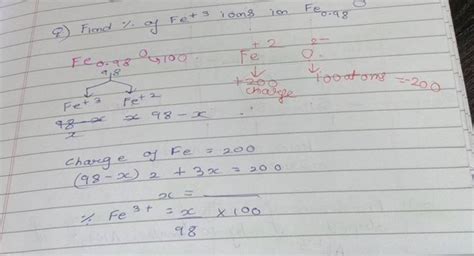 Q) Find % of Fe+3 ions in Fe0.98 O
Fe0.98 O→100
98
Fe+3 Fe+2
98-x x 98-x
x
+2 2-
Fe O
+200 100 atoms = -200
charge
Charge of Fe = 200
(98-x) 2 + 3x = 200
x = ____
% Fe3+ = x/98 × 100